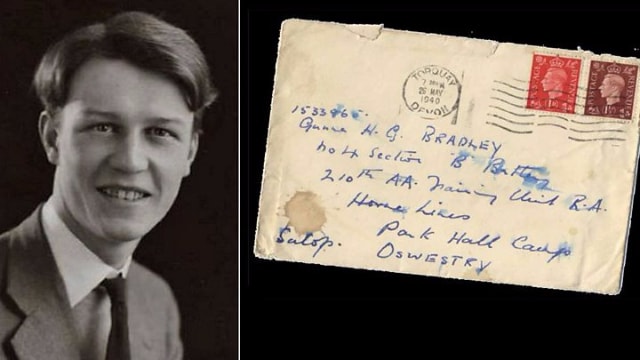 TORQUAY
26 MAY
1940
DEVON
POSTAGE
POSTAGE
1533965.
Gunner H. G. BRADLEY
No 4 Section B Battery
210th AA. Training Unit R.A.
Home Lines
Park Hall Camp
OSWESTRY
Salop.